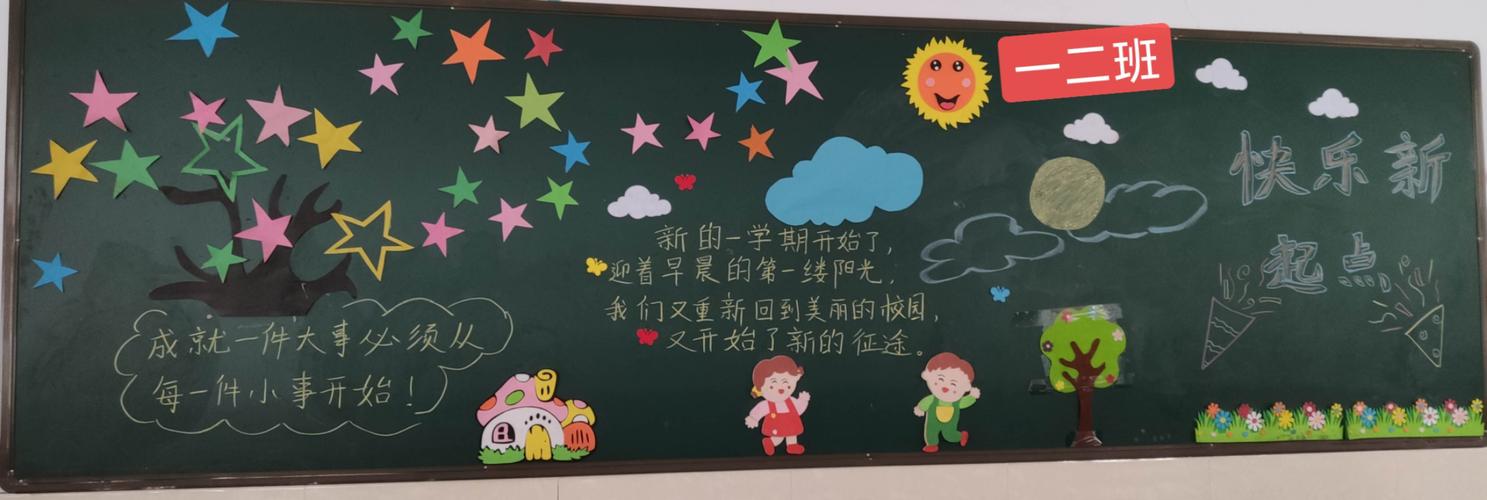 一二班
快乐新
起点
新的一学期开始了，
迎着早晨的第一缕阳光，
我们又重新回到美丽的校园，
又开始了新的征途。
成就一件大事必须从
每一件小事开始！